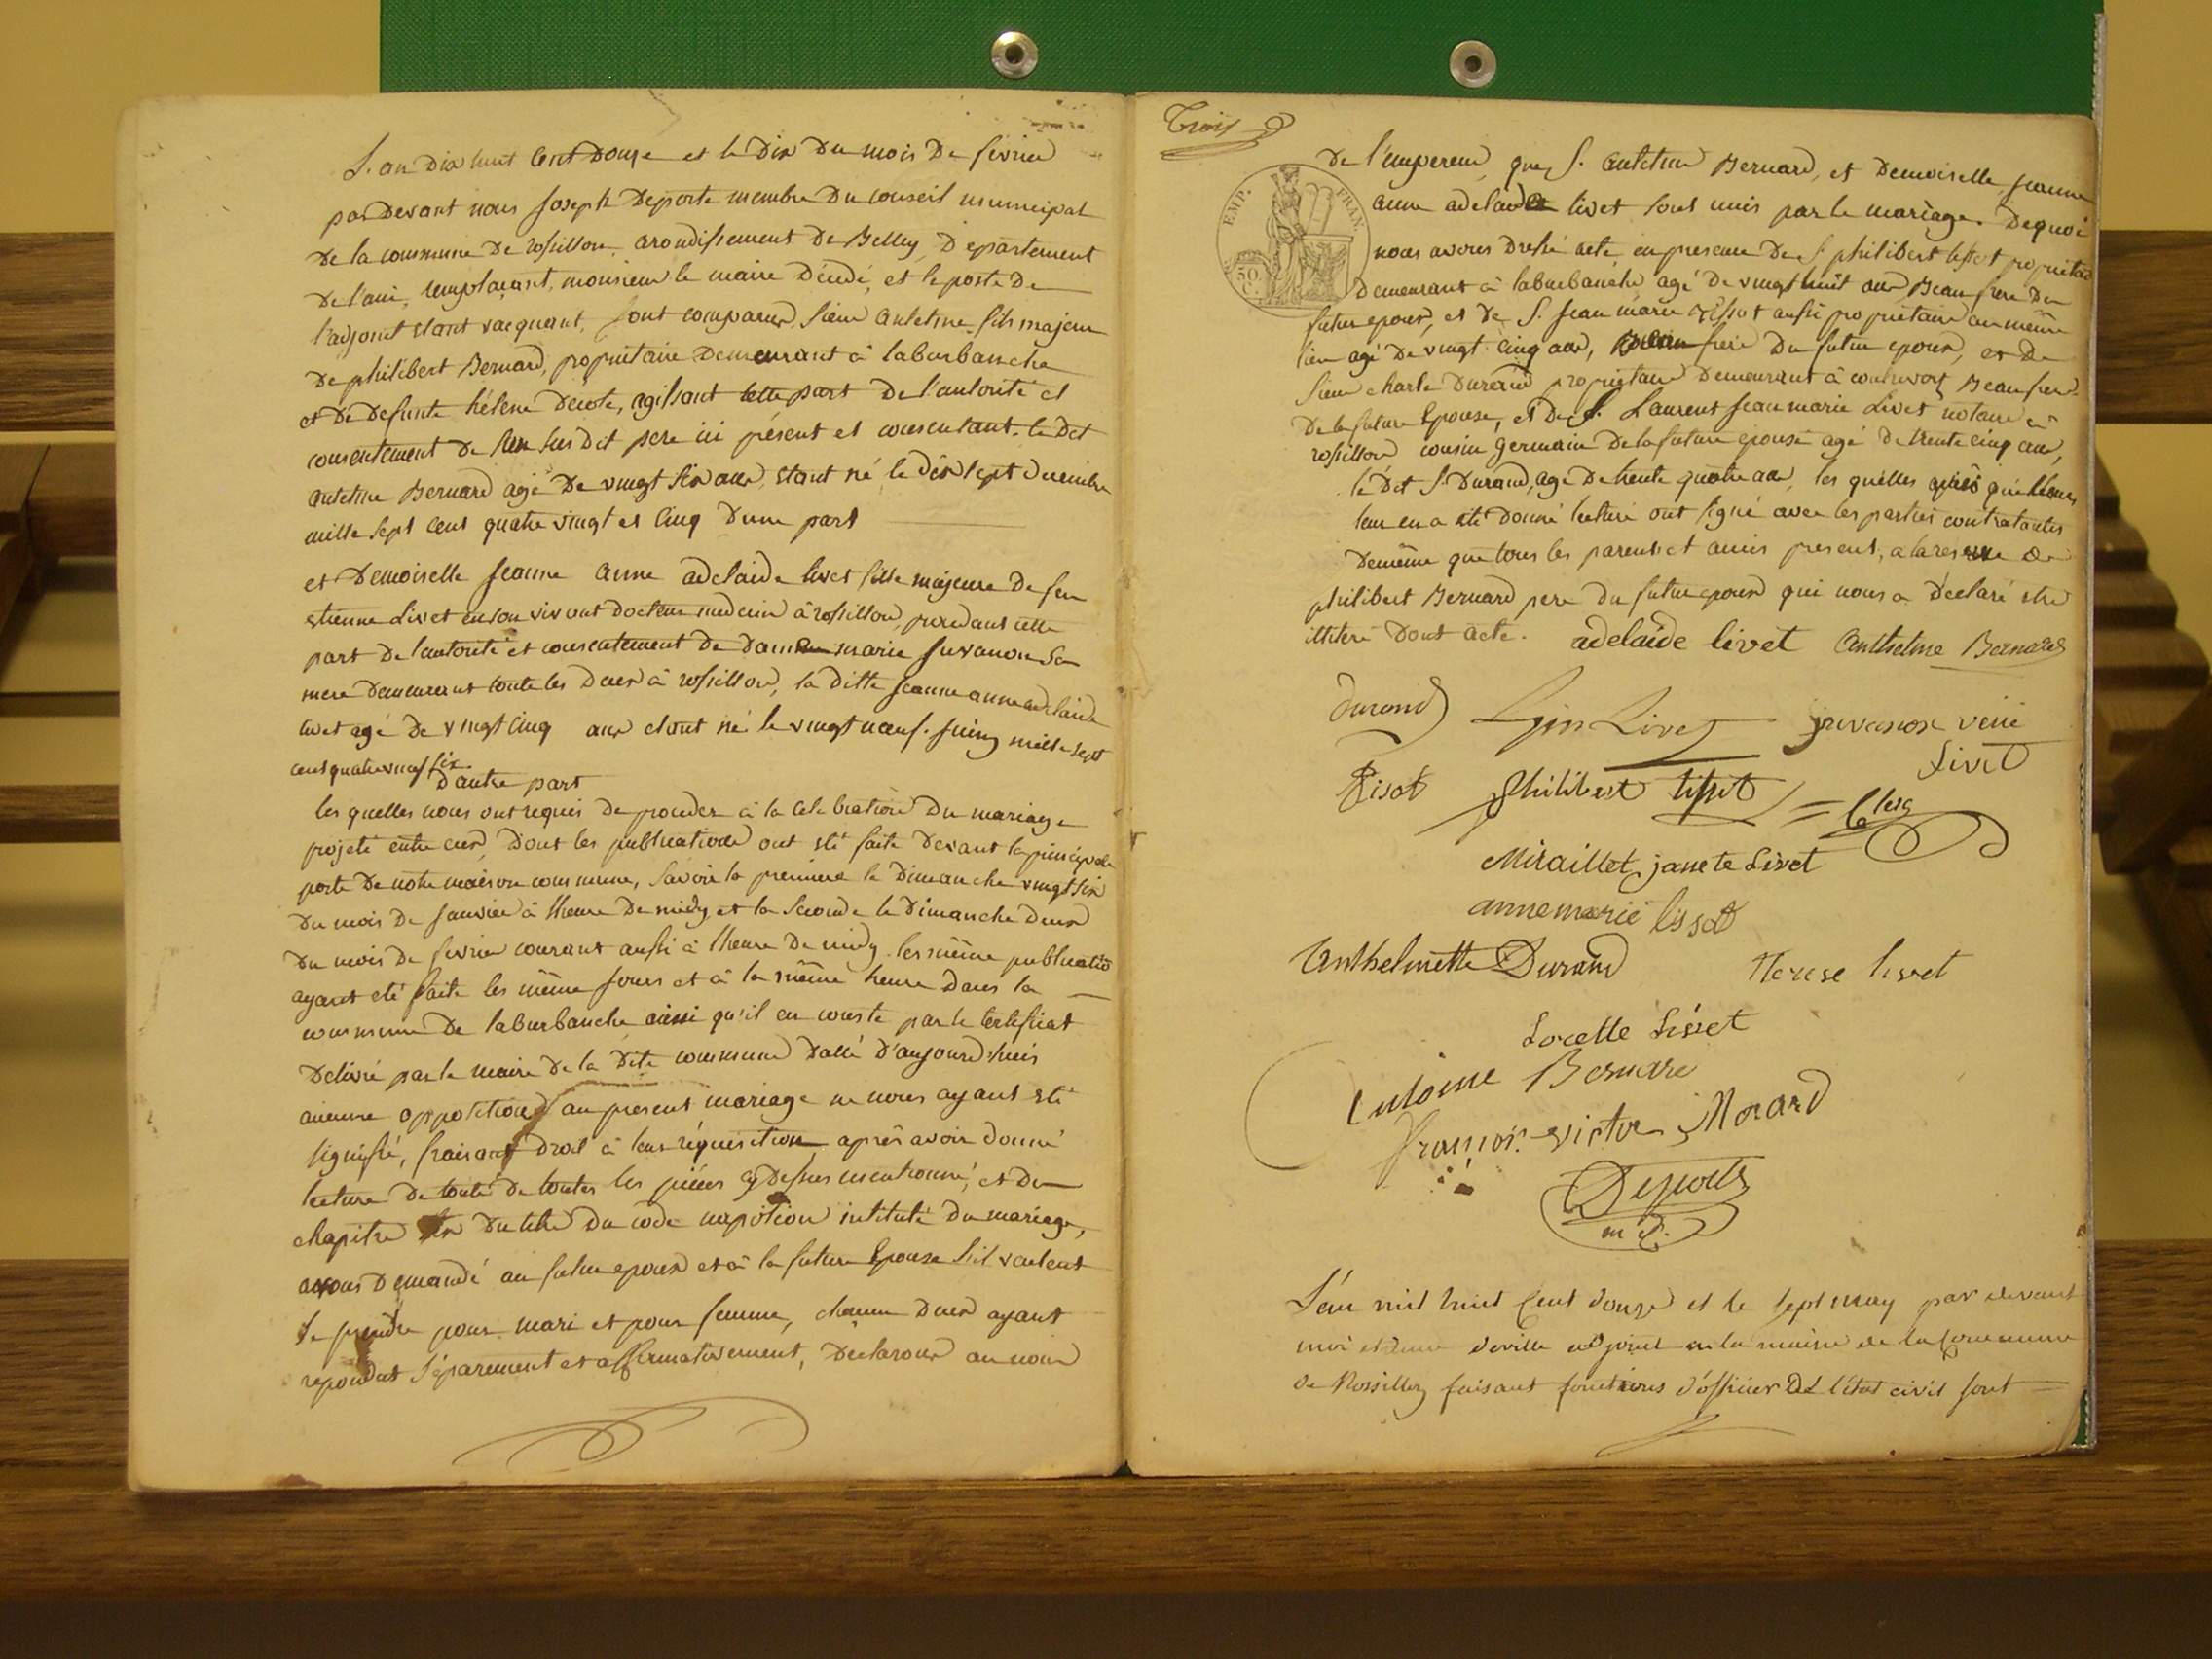 L'an dix huit cent Douze et le Dix Du mois De fevrier
par Devant nous joseph Deporte membre Du conseil municipal
De la commune De rossillon, arondissement De Belley, Departement
De l'ain, remplaçant, monsieur le maire Décédé, et le poste De
l'adjoint etant vacquant, sont comparus, sieur antelme fils majeur
De philibert Bernard, propriétaire Demeurant à laburbanche
et De Defunte hélene Decote, agissant cette part De l'autorité et
consentement De son susdit pere ici présent et consentant. le Dit
antelme Bernard agé De vingt six ans, étant né le dix sept
mille sept cent quatre vingt et cinq Dune part
et Demoiselle jeanne anne adelaide livet fille majeure De feu
etienne Livet en son vivant docteur medecin à rossillon, procedant cette
part De l'autorité et consentement De Dame marie juvanon Sa
mere Demeurant toutes les Deux à rossillon, la ditte jeanne anne adelaide
livet agé De vingt cinq ans etant né le vingt neuf juin mille sept
cent quatre vingt six
D'autre part
les quelles nous ont requis De proceder à la celebration Du mariage
projeté entre eux, Dont les publications ont été faite Devant la principale
porte De notre maison commune, Savoir la premiere le Dimanche vingt six
Du mois De janvier à lheure De midy et la seconde le Dimanche Deux
Du mois De fevrier courant aussi à lheure De midy les même publicatio
ayant eté faite les même jours et à la même heure Dans la
commune De laburbanche ainsi qu'il en conste par le certificat
Delivré par le maire De la Dite commune Datté D'aujourdhuis
aucune oppotition au present mariage ne nous ayant eté
signifié, faisant Droit à leur réquisition après avoir Donné
lecture De toute De toutes les piéces cy Dessus mentionné, et Du
chapitre six Du titre Du code napoléon intitulé Du mariage,
avons Demandé au futur epoux et à la future Epouse s'il veulent
se prendre pour mari et pour femme, chacun Deux ayant
repondut séparement et affirmativement, Declarons au nom
Trois
De l'empereur, que S. antelme Bernard, et Demoiselle jeanne
anne adelaide livet sont unis par le mariage. Dequoi
nous avons Dressé acte en presence De S philibert tissot proprietai
Demeurant à laburbanche agé De vingt huit ans Beau frere Du
futur epoux, et De S. jean marie tissot aussi propriétaire au même
lieu agé De vingt cinq ans, frere Du futur epoux, et De
Sieur charle Durand propriétaire Demeurant à Beau frere
De la future Epouse, et De S. Laurent jean marie Livet notaire à
rossillon cousin germain De la future epouse agé De trente cinq ans,
le Dit S. Durand, agé De trente quatre ans, les quelles après que lecture
leur en a eté Donné lecture ont signé avec les parties contratantes
De même que tous les parents et amis present, a la reserve De
philibert Bernard pere Du futur epoux qui nous a Déclaré etre
illiteré Dont acte. adelaide livet anthelme Bernard
EMP. FRAN.
50.
Durand Livet juvanon veuve
Livet
Tisot Philibert tissot
Miraillet janete Livet
anne marie tissot
Anthelmette Durand Terese livet
Livet
Antoine Bernard
françois victor Morard
Deporte
m. d.
L'an mil huit cent douze et le sept may par devant
moi etienne deville adjoint en la mairie de la commune
de Rossillon faisant fonctions d'officier de l'état civil sont